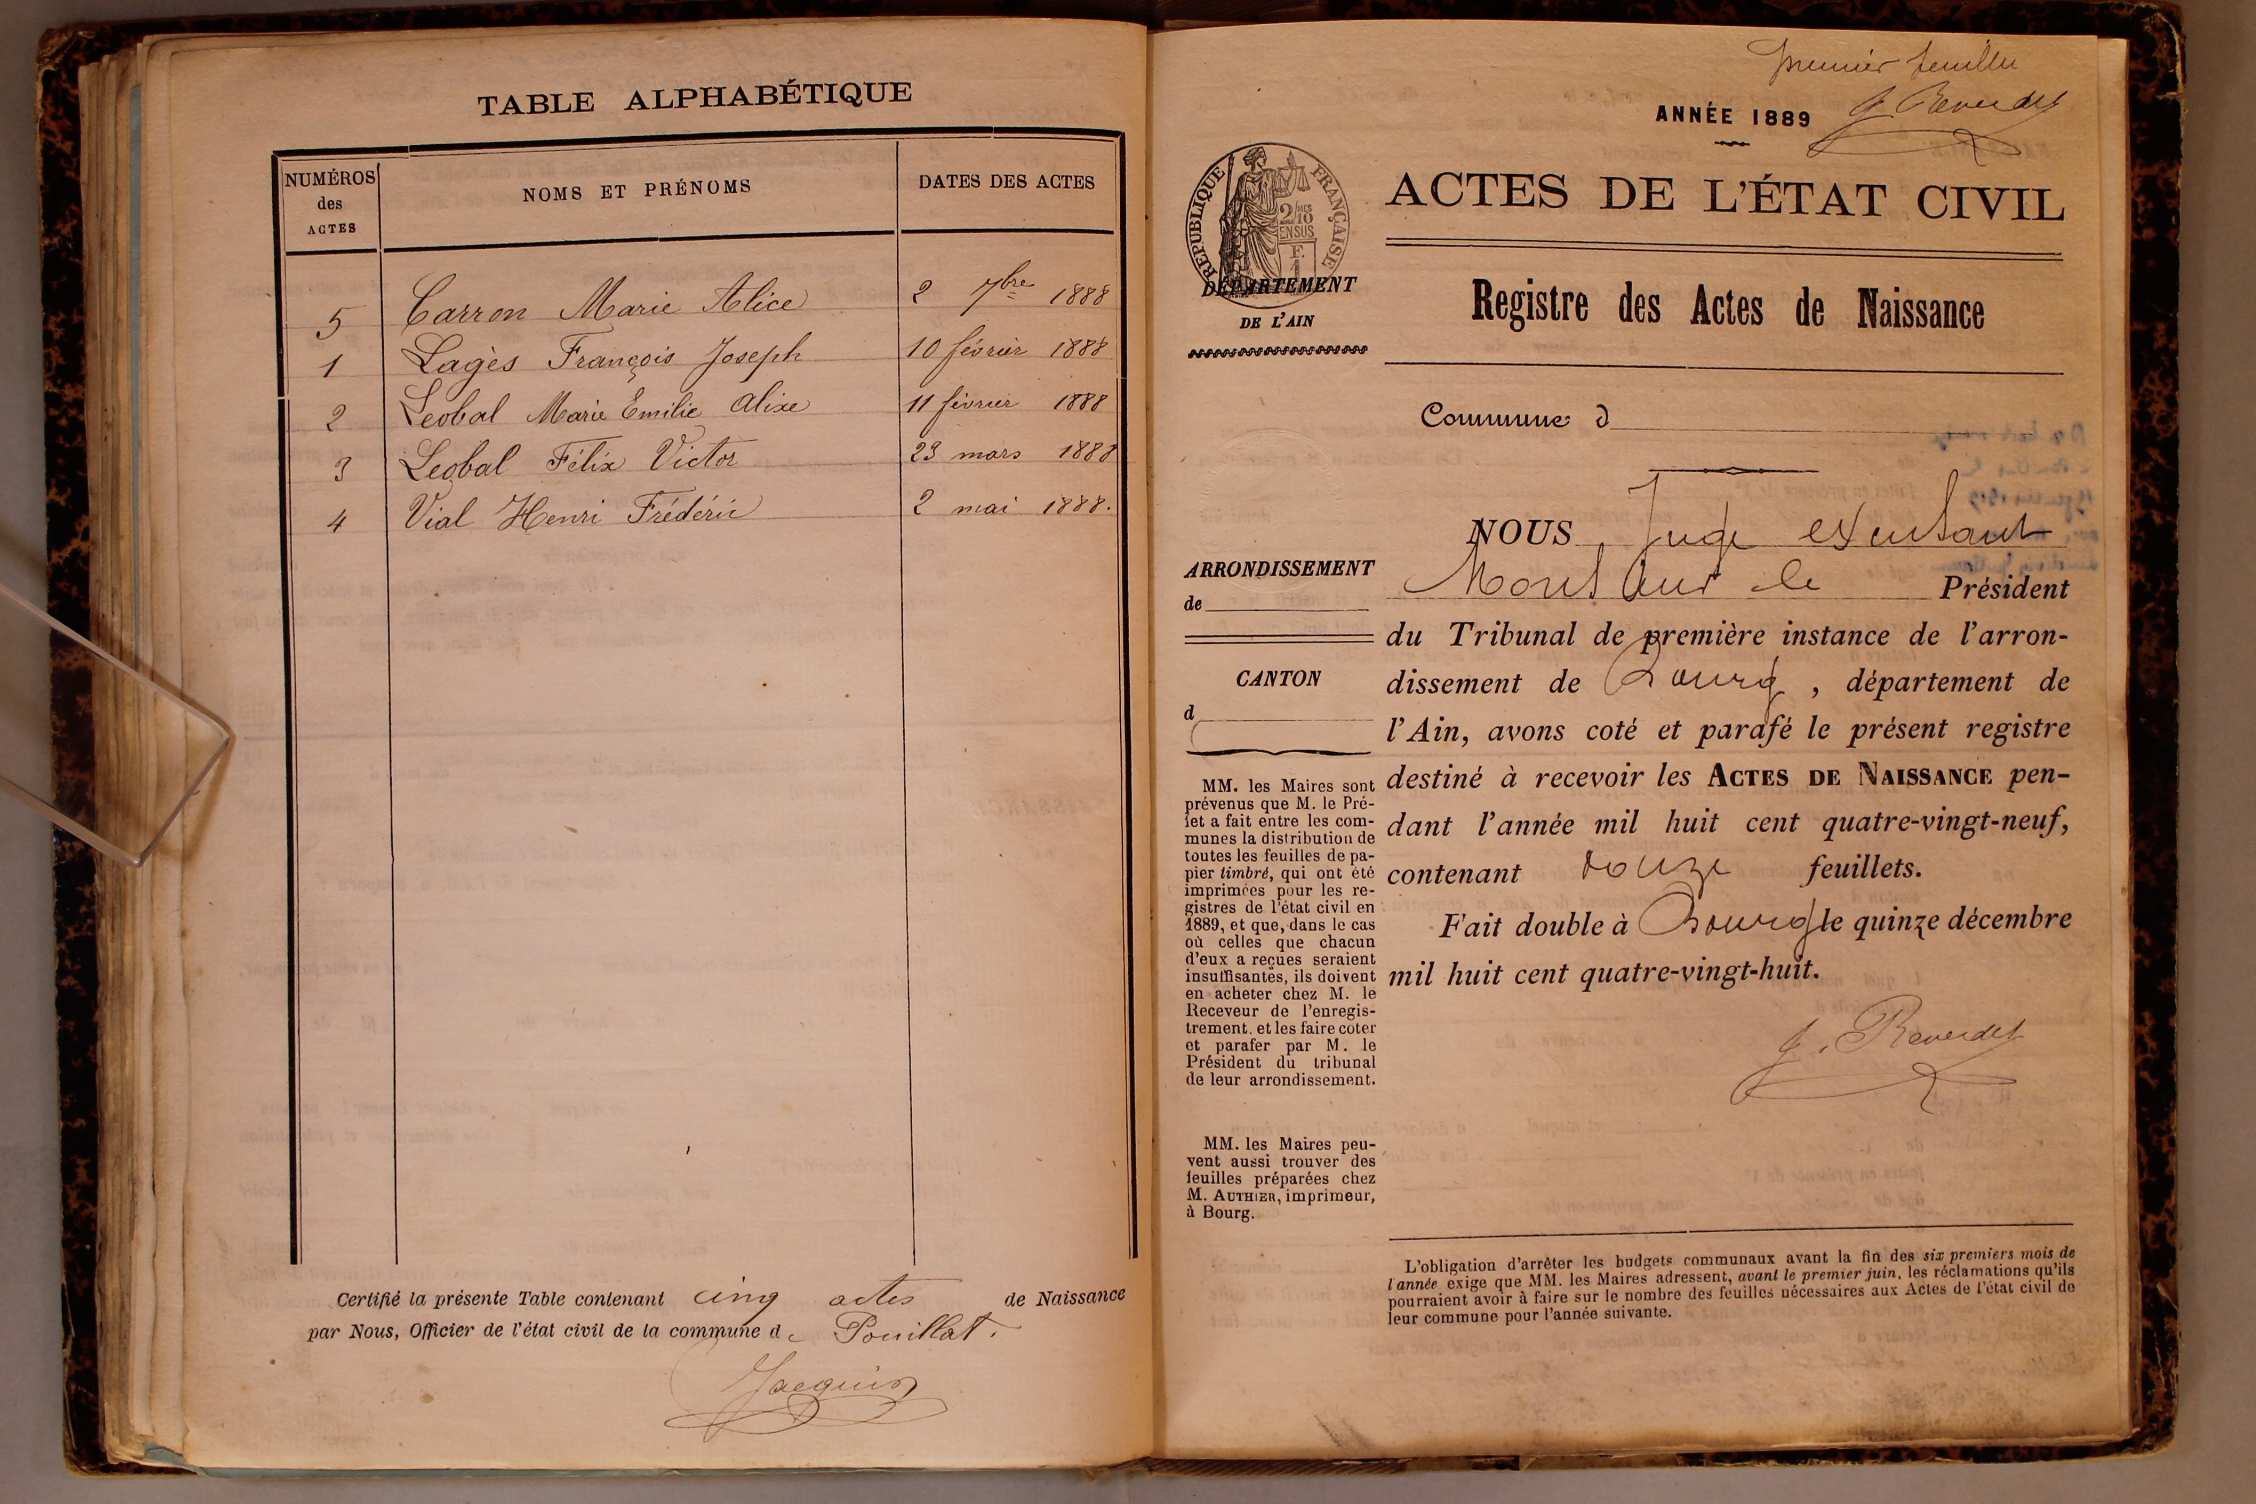 TABLE ALPHABÉTIQUE
NUMÉROS
des
ACTES
NOMS ET PRÉNOMS
DATES DES ACTES
5 Carron Marie Alice 2 7bre 1888
1 Lagès François Joseph 10 février 1888
2 Leobal Marie Emilie Alixe 11 février 1888
3 Leobal Félix Victor 23 mars 1888
4 Vial Henri Frédéric 2 mai 1888.
Certifié la présente Table contenant cinq actes de Naissance
par Nous, Officier de l'état civil de la commune de Pouillat.
Jacquin
premier feuillet
J. Reverdet
ANNÉE 1889
REPUBLIQUE FRANÇAISE
2/10
EN SUS
F.
1
DÉPARTEMENT
DE L'AIN
ACTES DE L'ÉTAT CIVIL
Registre des Actes de Naissance
Commune d
ARRONDISSEMENT
de
CANTON
d
MM. les Maires sont
prévenus que M. le Pré-
fet a fait entre les com-
munes la distribution de
toutes les feuilles de pa-
pier timbré, qui ont été
imprimées pour les re-
gistres de l'état civil en
1889, et que, dans le cas
où celles que chacun
d'eux a reçues seraient
insuffisantes, ils doivent
en acheter chez M. le
Receveur de l'enregis-
trement, et les faire coter
et parafer par M. le
Président du tribunal
de leur arrondissement.
MM. les Maires peu-
vent aussi trouver des
feuilles préparées chez
M. AUTHIER, imprimeur,
à Bourg.
NOUS Juge
Monsieur le Président
du Tribunal de première instance de l'arron-
dissement de Bourg, département de
l'Ain, avons coté et parafé le présent registre
destiné à recevoir les ACTES DE NAISSANCE pen-
dant l'année mil huit cent quatre-vingt-neuf,
contenant douze feuillets.
Fait double à Bourg le quinze décembre
mil huit cent quatre-vingt-huit.
J. Reverdet
L'obligation d'arrêter les budgets communaux avant la fin des six premiers mois de
l'année exige que MM. les Maires adressent, avant le premier juin, les réclamations qu'ils
pourraient avoir à faire sur le nombre des feuilles nécessaires aux Actes de l'état civil de
leur commune pour l'année suivante.